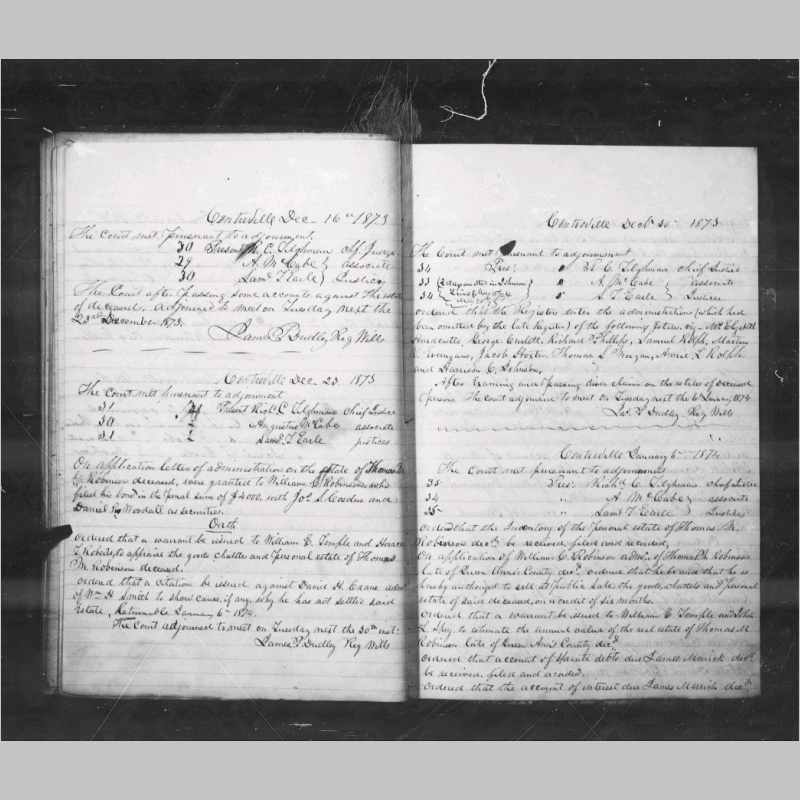 Centreville Dec. 16th 1873
The Court met pursuant to adjournment.
30 Present R. C. Tilghman chf. Judge
29 A. McCabe } associate
30 Saml. T. Earle } Justices
The Court after passing some accounts against the estate
of deceased, adjourned to meet on Tuesday next the
23rd December 1873.
James P. Dudley Reg Wills
Centreville Dec. 23. 1873
The Court met pursuant to adjournment
31 Present Richd. C. Tilghman Chief Judge
30 " Augustus McCabe associate
31 " Saml. T. Earle justices
On application letters of administration on the estate of Thomas M.
Robinson deceased, were granted to William C. Robinson who
filed his bond in the penal sum of $4000. with Jos. S. and
Daniel Woodall as securities.
Oath
ordered that a warrant be issued to William E. Temple and
T. Roberts to appraise the goods chattles and personal estate of Thomas
M. Robinson deceased.
ordered that a citation be issued against David H. Crane admr.
of Wm. H. Smith to show cause, if any, why he has not settled said
estate, Returnable January 6th 1874.
The Court adjourned to meet on Tuesday next the 30th inst:
James P. Dudley Reg Wills
Centreville Decb. 30th 1873
The Court met pursuant to adjournment
34 Pres: " R. C. Tilghman Chief Judge
33 " A. McCabe } associate
34 " S. T. Earle } Justices
ordered that the Register enter the administrations (which had
been omitted by the late Register) of the following persons. viz. Mrs. Elizabeth
George Carlett, Richard P. Phillips, Samuel Rolph, Martin
Jacob Thomas S. Morgan, Anne L. Rolph
and Harrison C. Johnson.
After examining and passing divers claims on the estates of deceased
persons the court adjourned to meet on Tuesday next the 6th January 1874.
Jas. P. Dudley Reg Wills
Centreville January 6th 1874
The Court met pursuant to adjournment
35 Pres: Richd. C. Tilghman Chief Judge
34 " A. McCabe } associate
35 " Saml. T. Earle } Justices
ordered that the Inventory of the personal estate of Thomas M.
Robinson decd. be received filed and recorded,
On application of William C. Robinson admr. of Thomas M. Robinson
late of Queen Anns County decd. ordered that he be and that he is
hereby authorized to sell at public sale the goods, chattels and personal
estate of said deceased, on a credit of six months.
ordered that a warrant be issued to William E. Temple and John
L. to estimate the annual value of the real estate of Thomas M.
Robinson late of Queen Ann's County decd.
ordered that account of Sperate debts due James Merrick decd.
be received filed and recorded.
ordered that the account of interest due James Merrick decd.